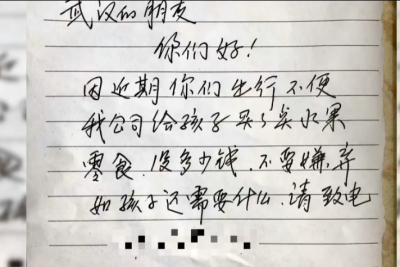 武汉的朋友
你们好!
因近期你们出行不便
我公司给孩子买了点水果
零食.没多少钱.不要嫌弃
如孩子还需要什么.请致电